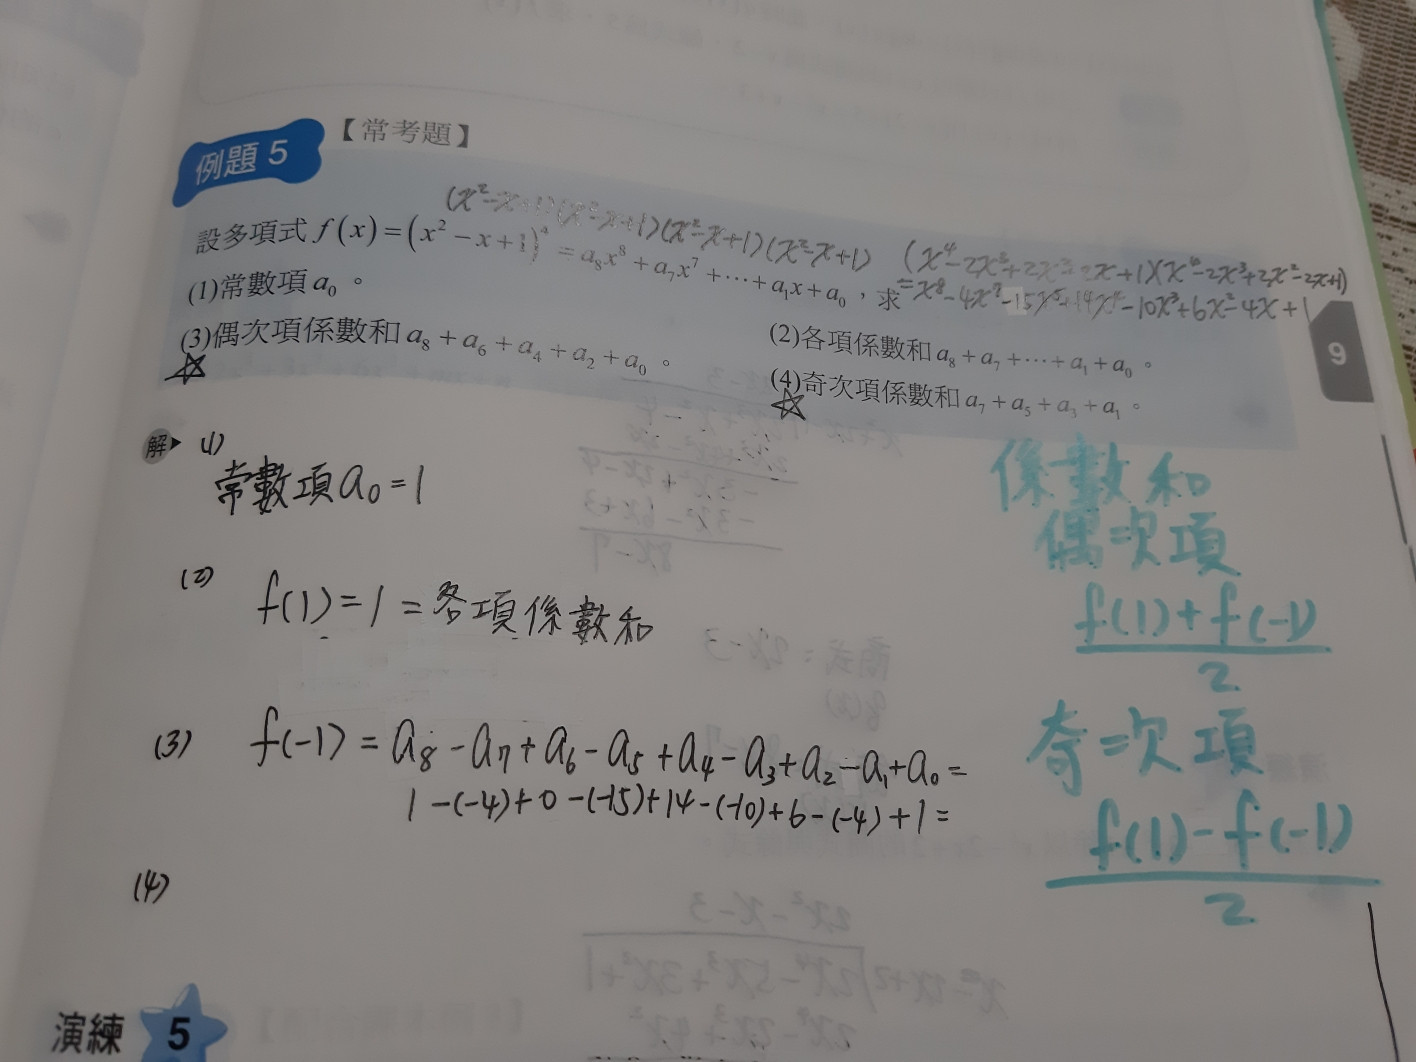 【常考題】
例題 5
(x²-x+1)(x²-x+1)(x²-x+1)(x²-x+1) (x⁴-2x³+2x²-2x+1)(x⁴-2x³+2x²-2x+1)
設多項式 f(x)=(x²-x+1)⁴=a₈x⁸+a₇x⁷+⋯+a₁x+a₀，求
=x⁸-4x⁷-15x⁵+14x⁴-10x³+6x²-4x+1
(1)常數項a₀。
(2)各項係數和a₈+a₇+⋯+a₁+a₀。
(3)偶次項係數和a₈+a₆+a₄+a₂+a₀。
(4)奇次項係數和a₇+a₅+a₃+a₁。
9
解 (1)
常數項a₀=1
(2) f(1)=1=各項係數和
(3) f(-1)=a₈-a₇+a₆-a₅+a₄-a₃+a₂-a₁+a₀=
1-(-4)+0-(-15)+14-(-10)+6-(-4)+1=
(4)
係數和
偶次項
f(1)+f(-1)
2
奇次項
f(1)-f(-1)
2
演練 5